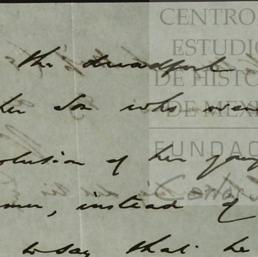 CENTRO
ESTUDIO
DE HISTO
DE MEXI
FUNDAC
the dreadful
her son who over
olution of her young
mer, instead of
to say that he